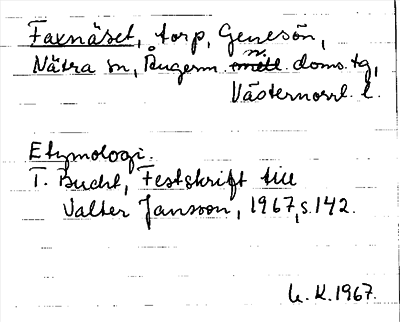 Faxnäset, torp, Genesön,
Nätra sn, Ångerm. n. doms. tg,
Västernorrl. l.
Etymologi.
T. Bucht, Festskrift till
Valter Jansson, 1967, s. 142.
U. K. 1967.